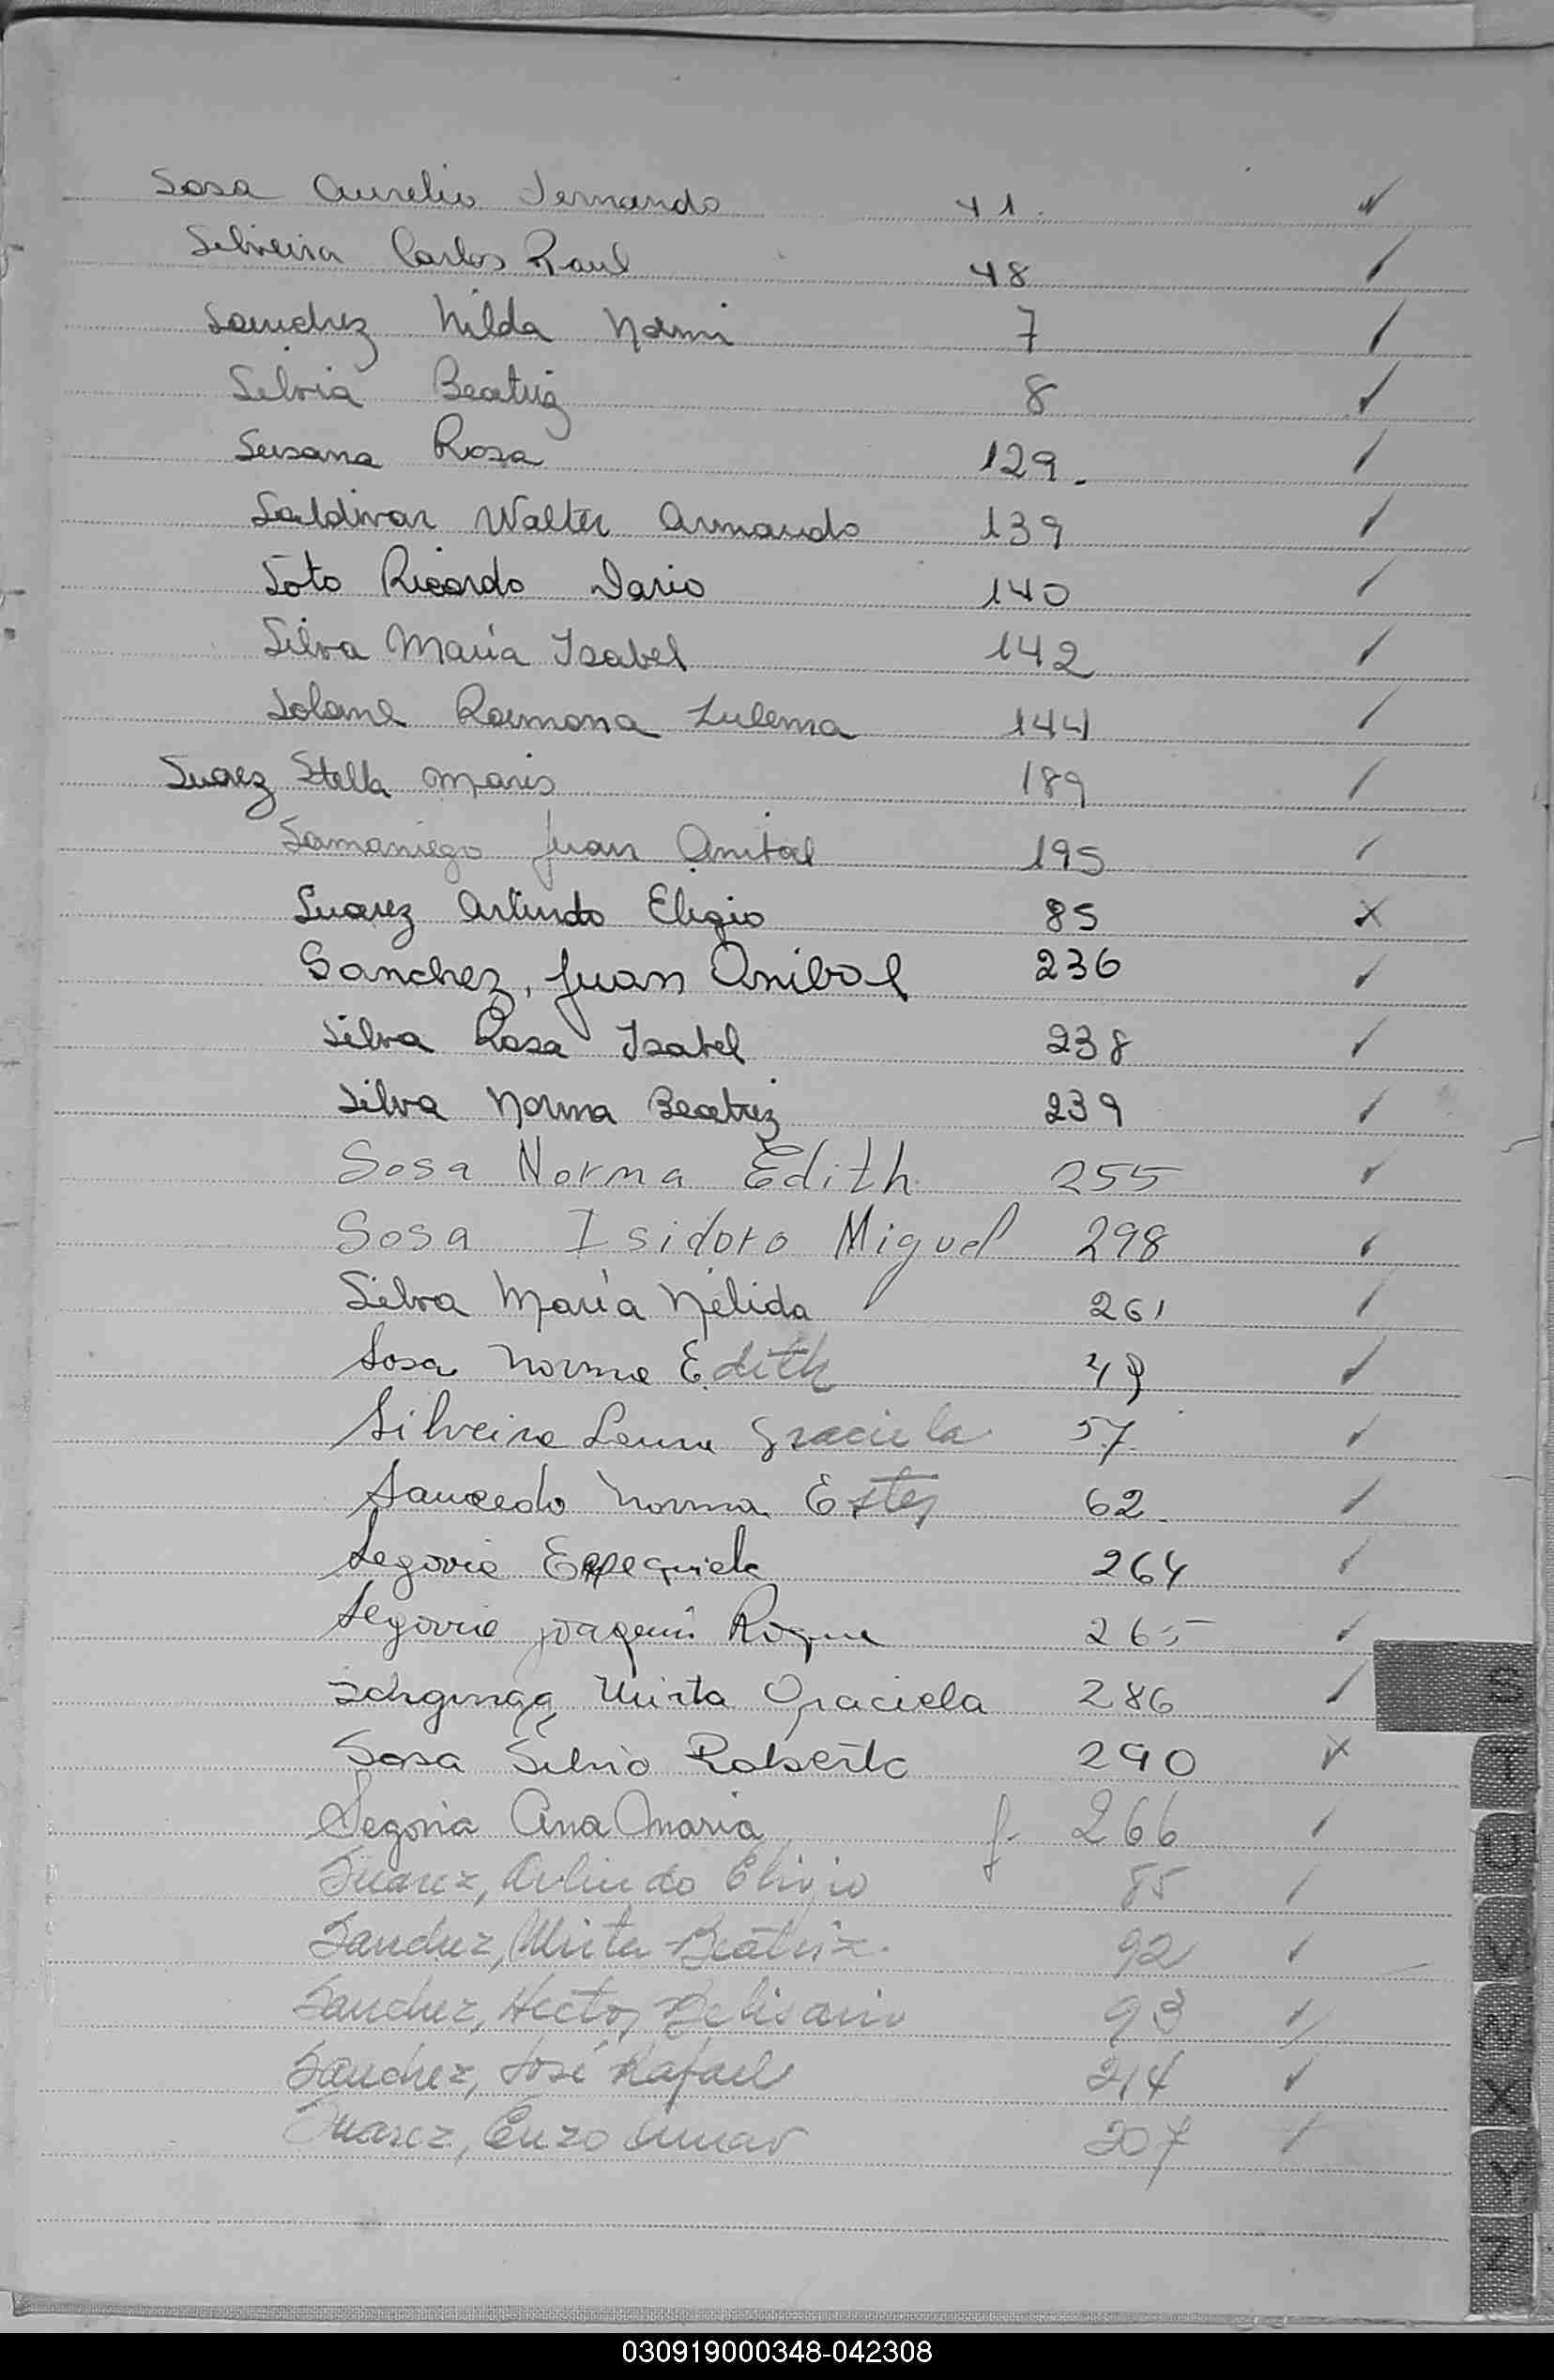 Sosa Aurelio Fernando 41.
Silveira Carlos Raul 48
Sanchez Nilda Noemi 7
Silvia Beatriz 8
Susana Rosa 129.
Saldivar Walter Armando 139
Soto Ricardo Dario 140
Silva María Isabel 142
Solane Ramona Zulema 144
Suarez Stella Maris 189
Samaniego Juan Anibal 195
Suarez Arlindo Eligio 85
Sanchez, Juan Anibal 236
Silva Rosa Isabel 238
Silva Norma Beatriz 239
Sosa Norma Edith 255
Sosa Isidoro Miguel 298
Silva María Nélida 261
Sosa Norma Edith 49
Silveira Laura Graciela 57
Saucedo Norma Ester 62
Segovia 264
Segovia Joaquin Roque 265
Mirta Graciela 286
Sosa Silvio Roberto 290
Segovia Ana Maria f. 266
Suarez, Arlindo Eligio 85
Sanchez, Mirta Beatriz 92
Sanchez, Hector Belisario 93
Sanchez, José Rafael 214
Suarez, Enzo Omar 207
S
T
U
V
W
X
Y
Z
030919000348-042308